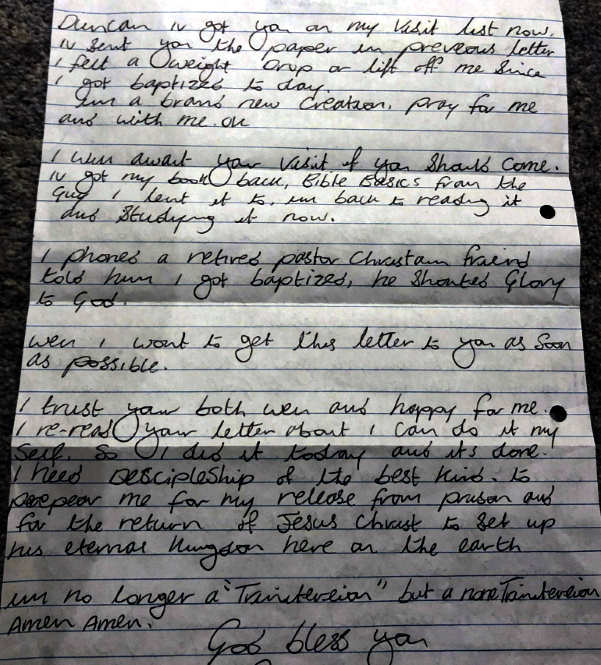 Duncan iv got you on my visit list now,
iv sent you the paper in preveous letter
I felt a weight drop or lift off me since
I got baptized to day.
Im a brand new creation. pray for me
and with me. ok
I will await your visit if you should come.
iv got my book back, Bible Basics from the
Guy I lent it to, im back to reading it
and studying it now.
I phoned a retired pastor Christain friend
told him I got baptized, he shouted Glory
to God.
well I want to get this letter to you as soon
as possible.
I trust your both well and happy for me.
I re-read your letter about I can do it my
self. So I did it today and its done.
I need Descipleship of the best kind. to
prepear me for my release from prison and
for the return of Jesus Christ to set up
his eternal Kingdon here on the earth
im no longer a "Trinitereian" but a none Trinitereian
Amen Amen.
God bless you